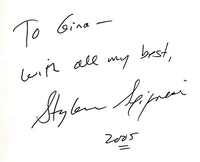 To Gina —
with all my best,
Stephen Spignesi
2005